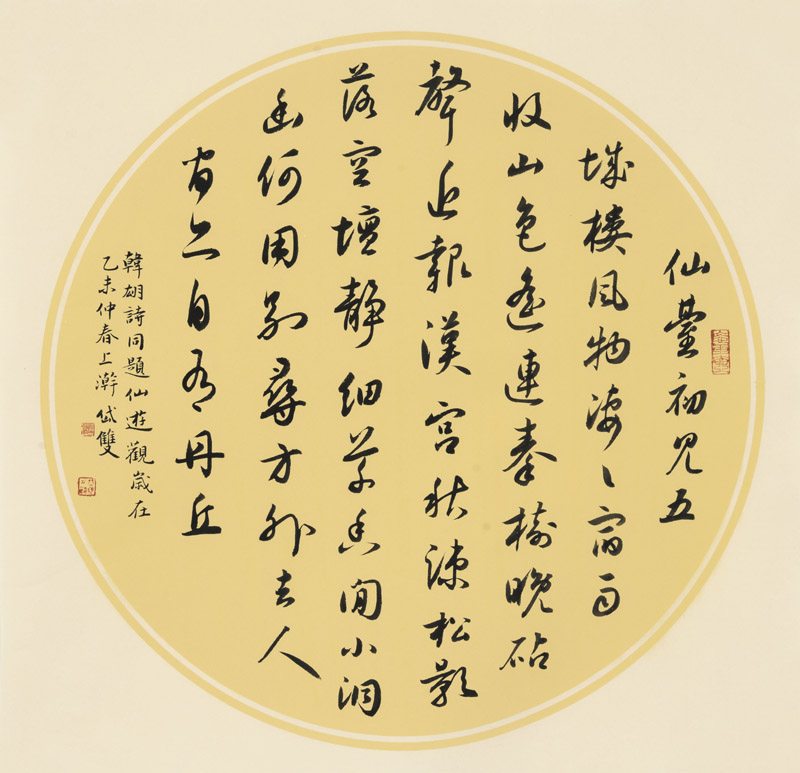 仙臺初見五
城樓風物凄々宿雨
收山色遙連秦樹晚砧
聲近報漢宮秋疎松影
落空壇靜細草香閒小洞
幽何用別尋方外去人
間亦自有丹丘
韓翃詩同題仙遊觀歲在
乙未仲春上澣岱雙